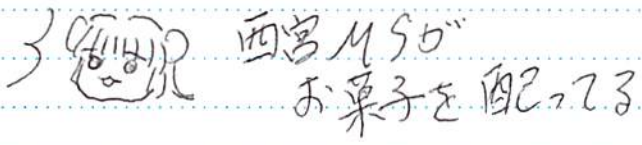 西宮MSが
お菓子を配ってる